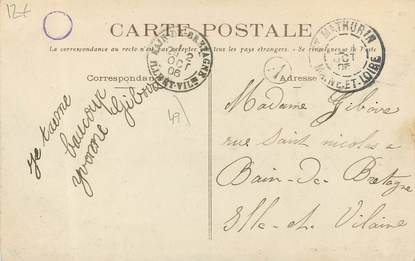 12+
CARTE POSTALE
La correspondance au recto n'est pas acceptée par tous les pays étrangers. - Se renseigner à la Poste
Correspondance
Adresse
BAIN-DE-BRETAGNE
2
OCT
06
ILLE-ET-VILNE
St MATHURIN
OCT
06
MAINE-ET-LOIRE
49
je t'aime
baucoup
yvonne Giboire
Madame Giboire
rue Saint nicolas
Bain-de-Bretagne
Ille-et-Vilaine